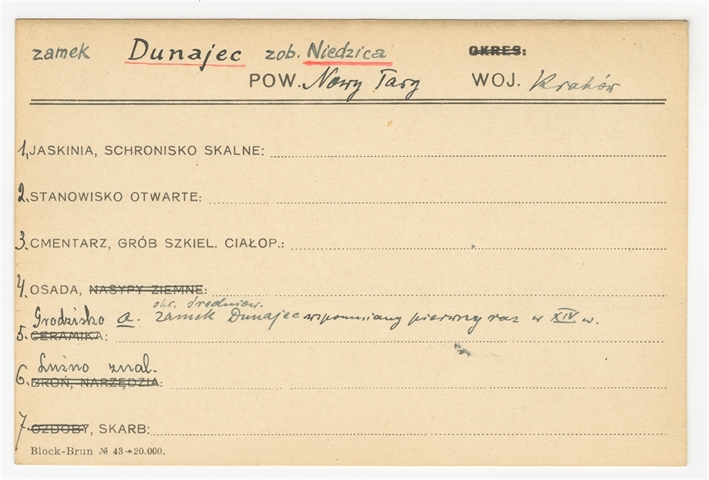 zamek Dunajec zob. Niedzica OKRES:
POW. Nowy Targ WOJ. Kraków
1, JASKINIA, SCHRONISKO SKALNE:
2. STANOWISKO OTWARTE:
3. CMENTARZ, GRÓB SZKIEL. CIAŁOP.:
4. OSADA, NASYPY ZIEMNE:
okr. średniow.
Grodzisko a. zamek Dunajec wspomniany pierwszy raz w XIV w.
5. CERAMIKA:
Luźno znal.
6. BROŃ, NARZĘDZIA:
7. OZDOBY, SKARB:
Block-Brun № 43→20.000.